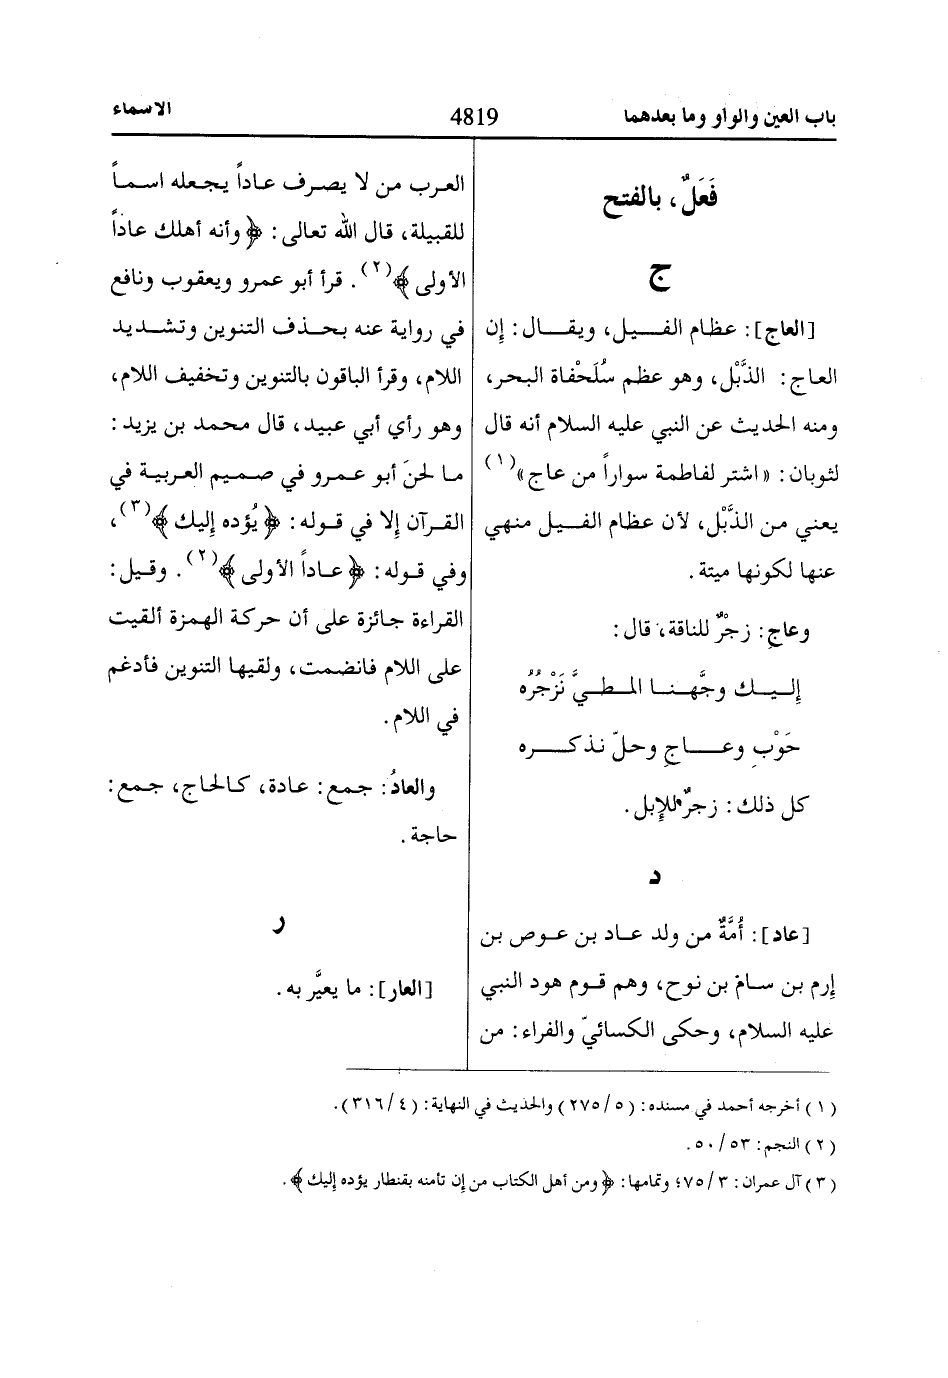 باب العين والواو وما بعدهما
4819
الاسماء
فَعَلٌ، بالفتح
ج
[العاج]: عظام الفيل، ويقال: إن
العاج: الذَّبْل، وهو عظم سُلَحْفاة البحر،
ومنه الحديث عن النبي عليه السلام أنه قال
لثوبان: «اشتر لفاطمة سواراً من عاج»(١)
يعني من الذَّبْل، لأن عظام الفيل منهي
عنها لكونها ميتة.
وعاجِ: زجْرٌ للناقة، قال:
إليك وجَّهنا المطيَّ نَزْجُرُه
حَوْبِ وعاجِ وحلّ نذكره
كل ذلك: زجرٌ للإبل.
د
[عاد]: أُمَّةٌ من ولد عاد بن عوص بن
إرم بن سام بن نوح، وهم قوم هود النبي
عليه السلام، وحكى الكسائيّ والفراء: من
العرب من لا يصرف عاداً يجعله اسماً
للقبيلة، قال الله تعالى: ﴿وأنه أهلك عاداً
الأولى﴾(٢). قرأ أبو عمرو ويعقوب ونافع
في رواية عنه بحذف التنوين وتشديد
اللام، وقرأ الباقون بالتنوين وتخفيف اللام،
وهو رأي أبي عبيد، قال محمد بن يزيد:
ما لحنَ أبو عمرو في صميم العربية في
القرآن إلا في قوله: ﴿يُؤده إليك﴾(٣)،
وفي قوله: ﴿عاداً الأولى﴾(٢). وقيل:
القراءة جائزة على أن حركة الهمزة ألقيت
على اللام فانضمت، ولقيها التنوين فأدغم
في اللام.
والعادُ: جمع: عادة، كالحاج، جمع:
حاجة.
ر
[العار]: ما يعيَّر به.
(١) أخرجه أحمد في مسنده: (٥/ ٢٧٥) والحديث في النهاية: (٤/ ٣١٦).
(٢) النجم: ٥٣/ ٥٠.
(٣) آل عمران: ٣/ ٧٥؛ وتمامها: ﴿ومن أهل الكتاب من إن تأمنه بقنطار يؤده إليك﴾.